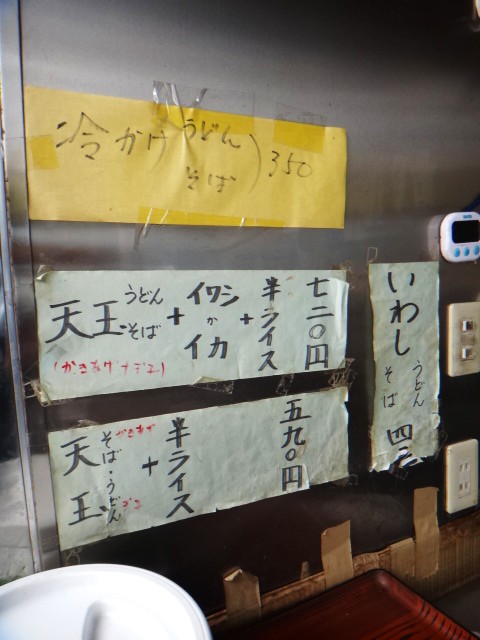 冷かけ うどん そば ) 350
天玉 うどん・そば + イワシ か イカ + 半ライス 七二〇円
(かきあげナデエ)
天玉 そば・うどん + 半ライス 五九〇円
かきあげ
いわし うどん そば 四